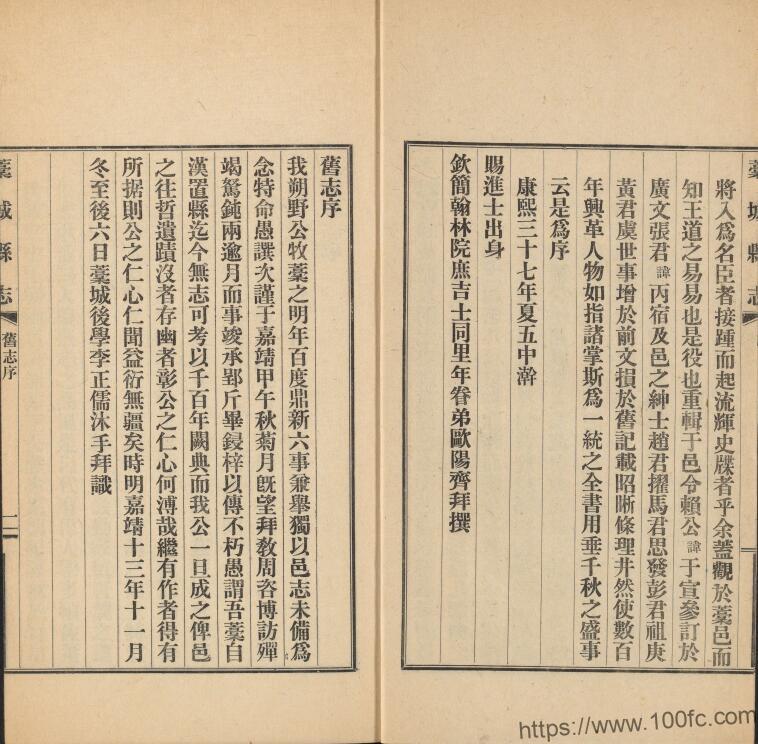 將入爲名臣者接踵而起流輝史牒者乎余蓋觀於藁邑而
知王道之易易也是役也重輯于邑令賴公諱于宣參訂於
廣文張君諱丙宿及邑之紳士趙君擢馬君思發彭君祖庚
黃君虞世事增於前文損於舊記載昭晰條理井然使數百
年興革人物如指諸掌斯爲一統之全書用垂千秋之盛事
云是爲序
康熙三十七年夏五中澣
賜進士出身
欽簡翰林院庶吉士同里年眷弟歐陽齊拜撰
舊志序
我朔野公牧藁之明年百度鼎新六事兼舉獨以邑志未備爲
念特命愚譔次謹于嘉靖甲午秋菊月旣望拜敎周咨博訪殫
竭駑鈍兩逾月而事竣承郢斤畢鋟梓以傳不朽愚謂吾藁自
漢置縣迄今無志可考以千百年闕典而我公一旦成之俾邑
之往哲遺蹟沒者存幽者彰公之仁心何溥哉繼有作者得有
所据則公之仁心仁聞益衍無疆矣時明嘉靖十三年十一月
冬至後六日藁城後學李正儒沐手拜識
藁城縣志
舊志序
https://www.100fc.com